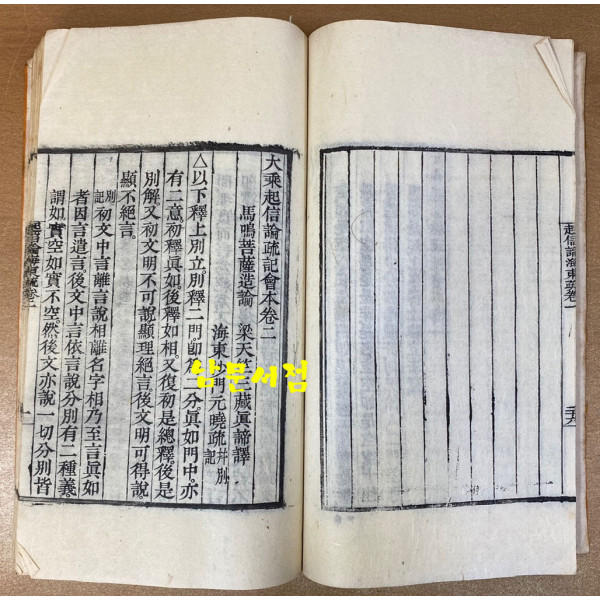 起信論海東疏卷一
二十六
大乘起信論疏記會本卷二
馬鳴菩薩造論 梁天竺三藏眞諦譯
海東沙門元曉疏幷別記
△以下釋上別立別釋二門卽第二分眞如門中亦
有二意初釋眞如後釋如相又復初是總釋後是
別解又初文明不可說顯理絕言後文明可得說
顯不絕言。
別記初文中言離言說相離名字相乃至言眞如
者因言遣言後文中言依言說分別有二種義
謂如實空如實不空然後文亦說一切分別皆
起信論海東疏卷二
一
남문서점